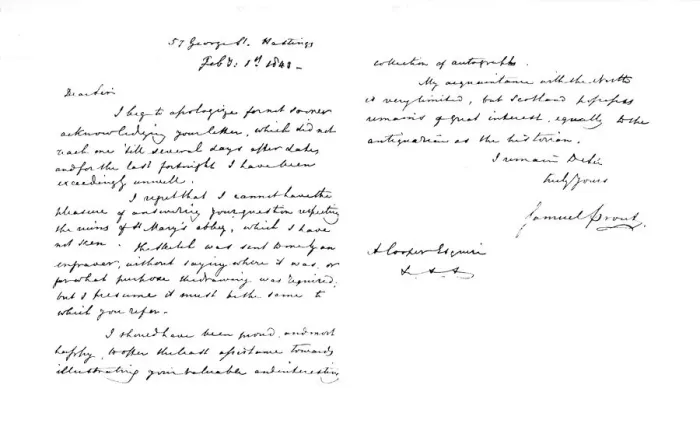 57 George St. Hastings
Feby. 1st 1842 -
Dear Sir
I beg to apologize for not sooner
acknowledging your letter, which did not
reach me 'till several days after date,
and for the last fortnight I have been
exceedingly unwell.
I regret that I cannot have the
pleasure of answering your question respecting
the ruins of St Mary's abbey, which I have
not seen. The sketch was sent to me by an
engraver, without saying where it was, or
for what purpose the drawing was required,
but I presume it must be the same to
which you refer.
I should have been proud, and most
happy, to offer the least assistance towards
illustrating your valuable and interesting
collection of autographs.
My acquaintance with the North
is very limited, but Scotland possesses
remains of great interest, equally to the
antiquarian as the historian.
I remain D Sir
truly yours
Samuel Prout.
A Cooper Esquire